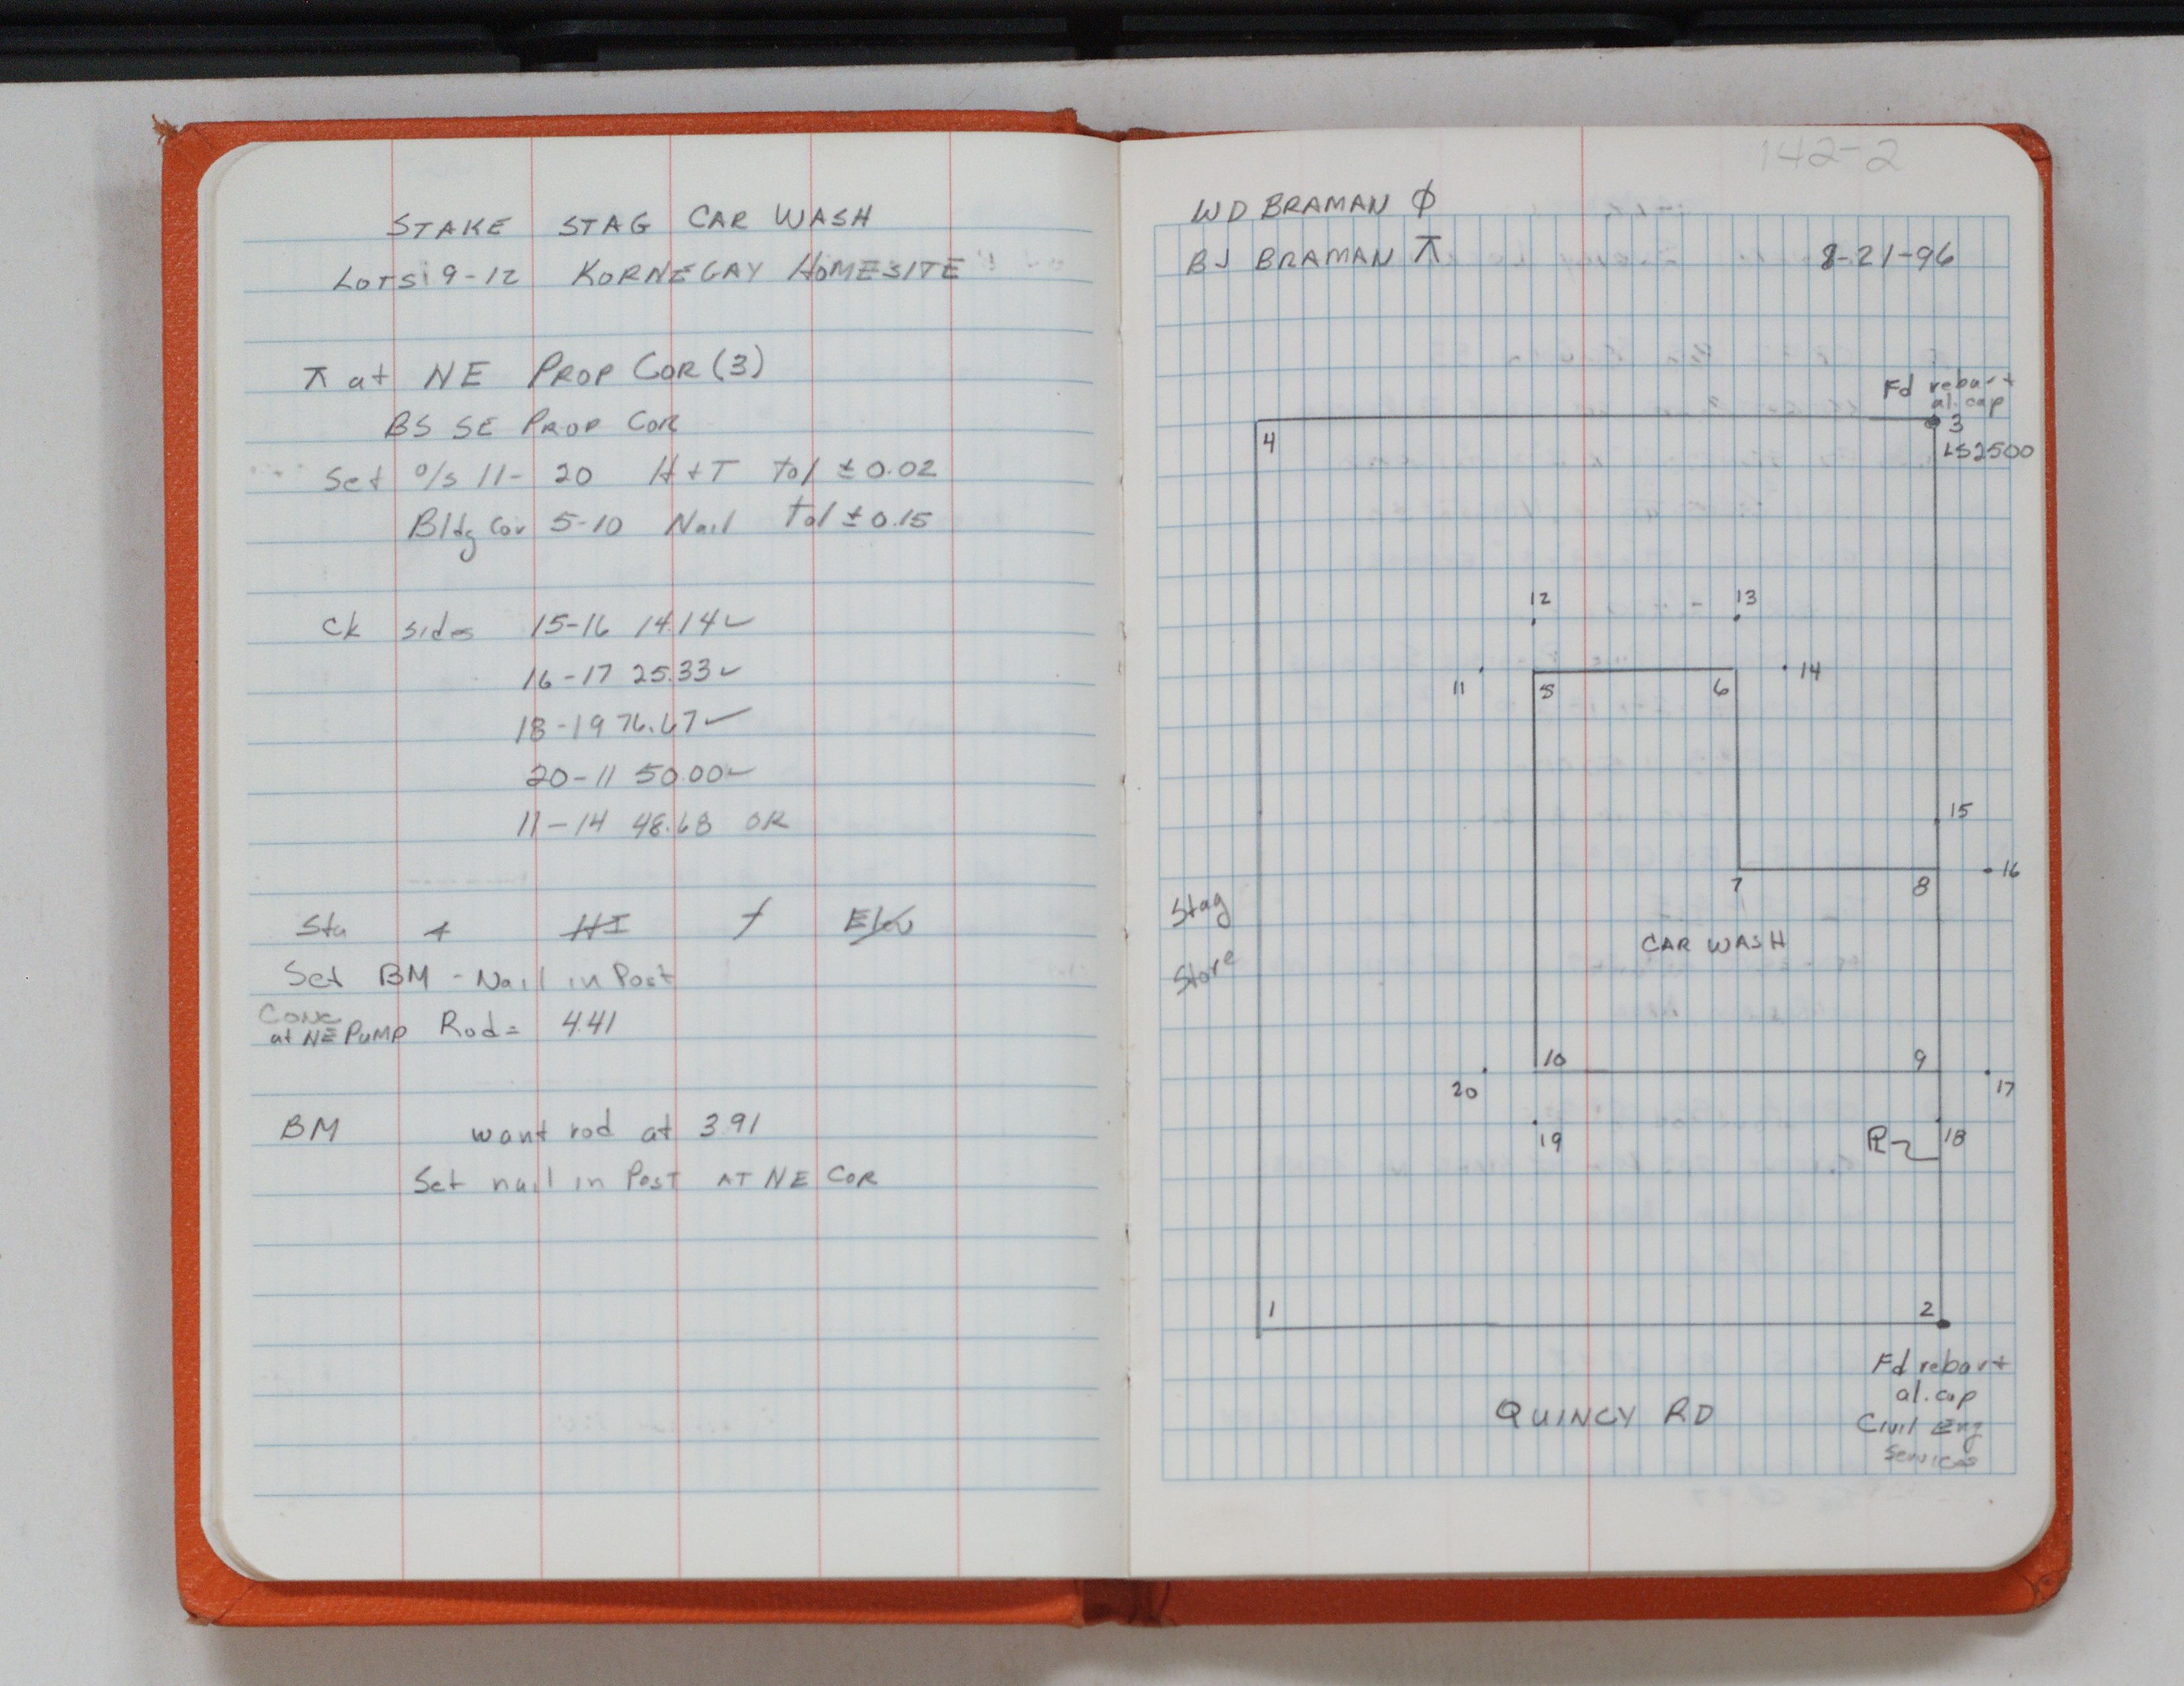 STAKE STAG CAR WASH
LOTS 9-12 KORNEGAY HOMESITE
⊼ at NE PROP COR (3)
BS SE PROP COR
Set o/s 11- 20 H+T tol ± 0.02
Bldg Cor 5-10 Nail tol ± 0.15
Ck sides 15-16 14.14 ✓
16-17 25.33 ✓
18-19 76.67 ✓
20-11 50.00 ✓
11-14 48.68 OK
Sta + HI Elev
Set BM - Nail in Post
Conc
at NE PUMP Rod = 4.41
BM want rod at 3.91
Set nail in Post AT NE COR
142-2
WD BRAMAN ϕ
BJ BRAMAN ⊼ 8-21-96
Fd rebar +
al. cap
4 3
LS2500
12 13
11 5 6 14
15
7 8 16
Stag
CAR WASH
Store
10 9
20 17
19 18
1 2
Fd rebar +
al. cap
QUINCY RD
Civil Eng
Services